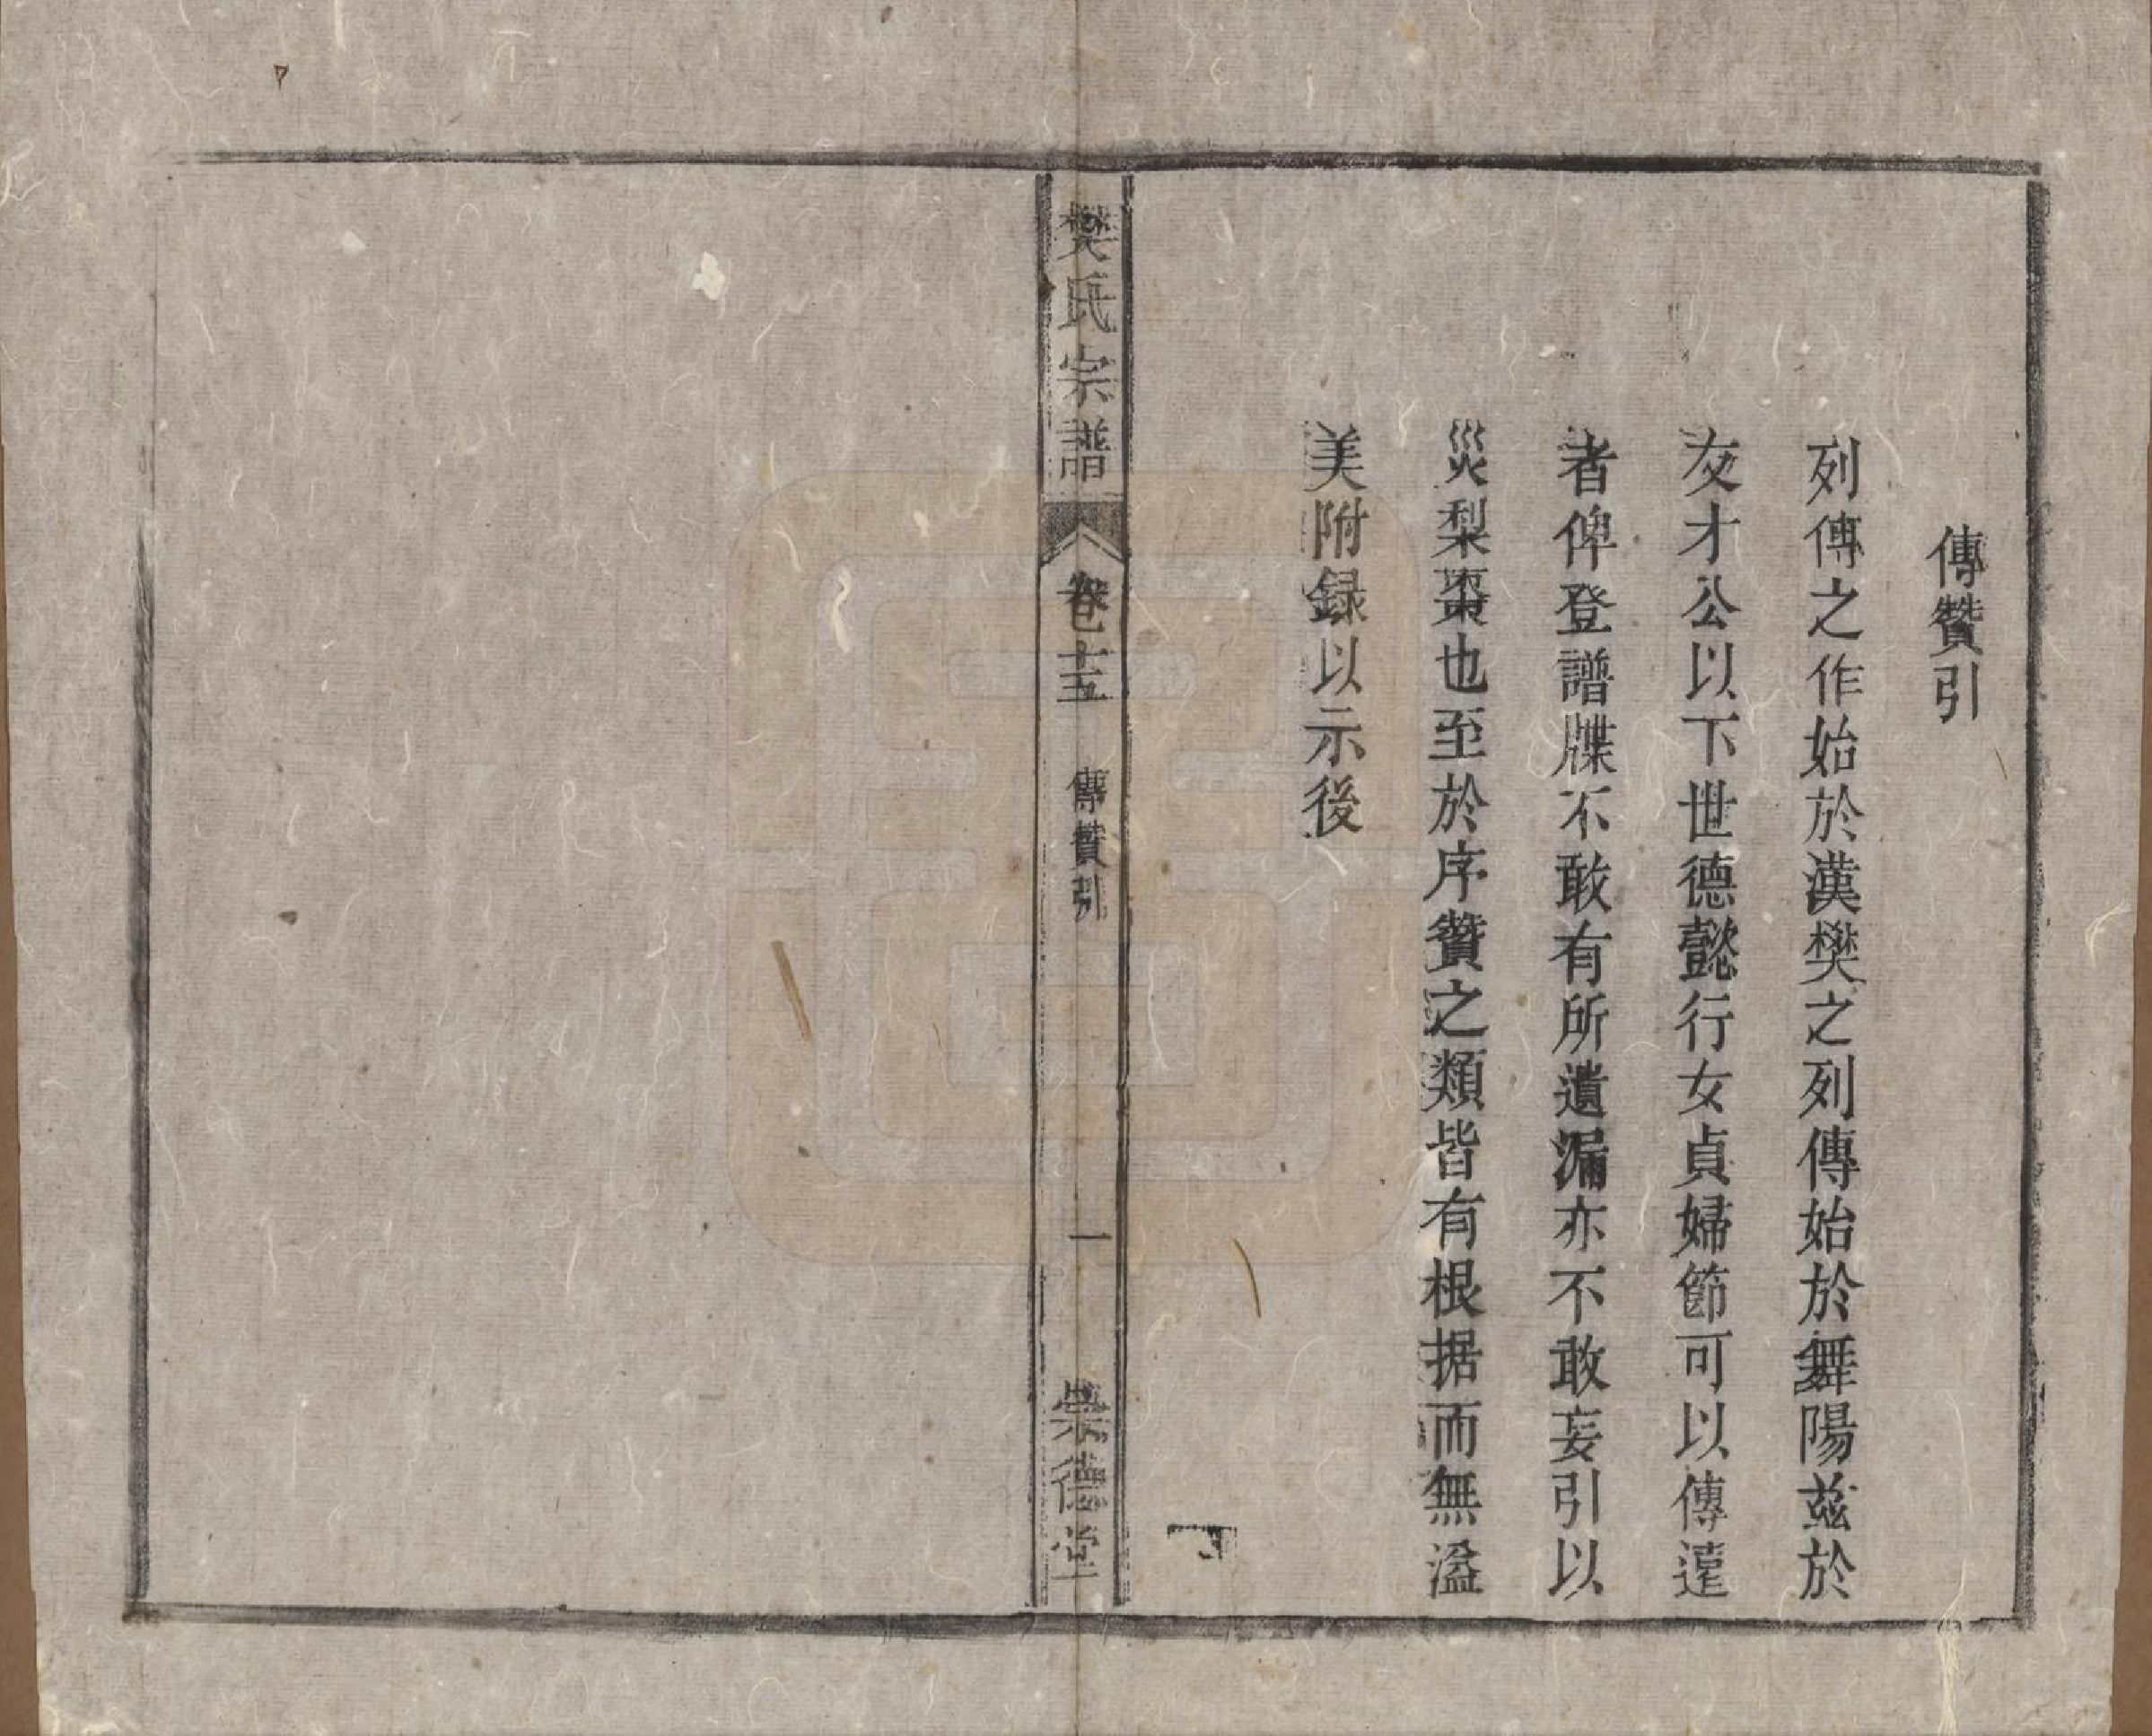 傳贊引
列傳之作始於漢樊之列傳始於舞陽茲於
友才公以下世德懿行女貞婦節可以傳遠
者俾登譜牒不敢有所遺漏亦不敢妄引以
災梨棗也至於序贊之類皆有根据而無溢
美附録以示後
樊氏宗譜 卷之十五 傳贊引 一 崇德堂